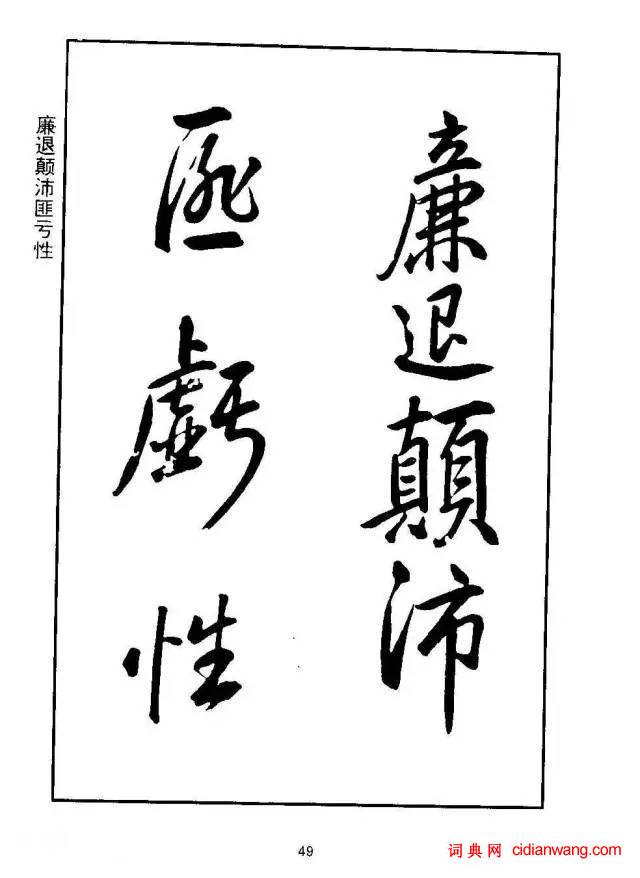 廉退顛沛
匪虧性
廉退颠沛匪亏性
49
词典网 cidianwang.com